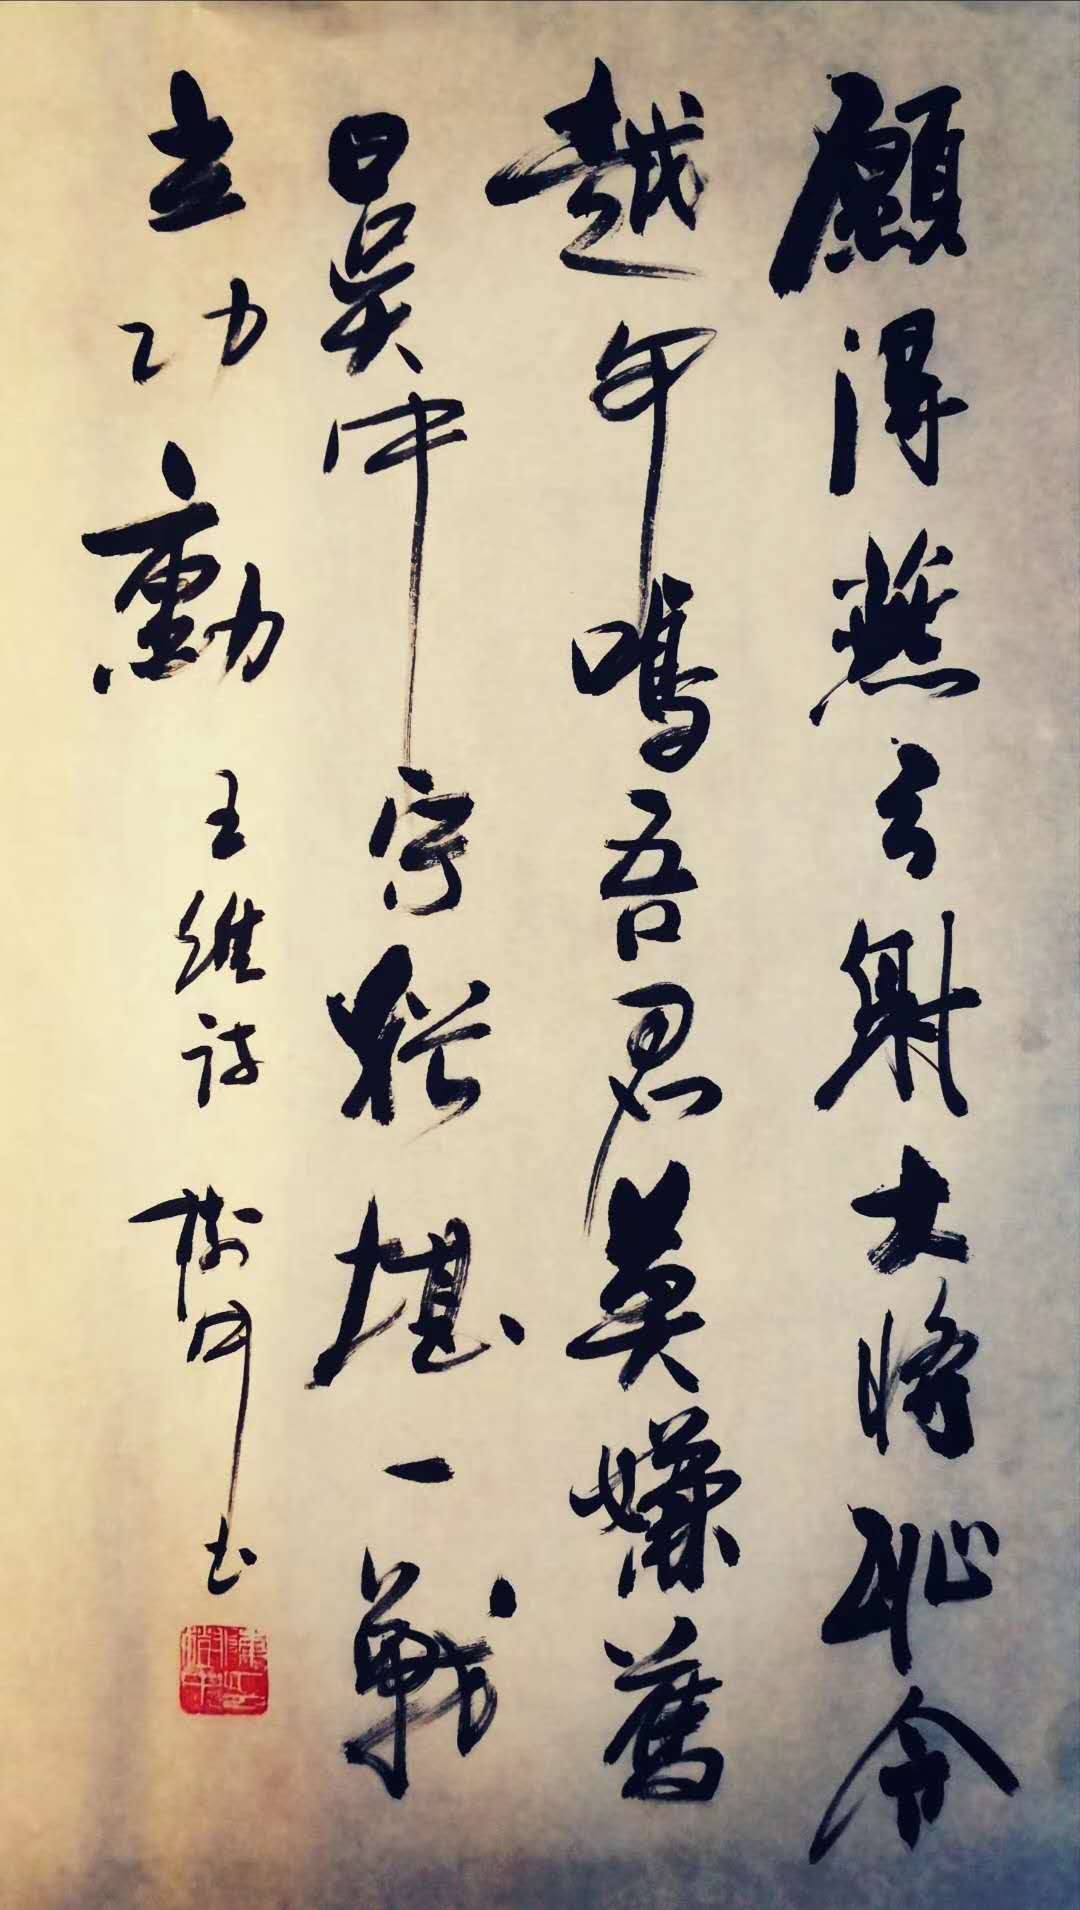 願得燕弓射大將恥令
越甲鳴吾君莫嫌舊
日吳中守猶堪一戰
立功勳 王維詩 樹 书